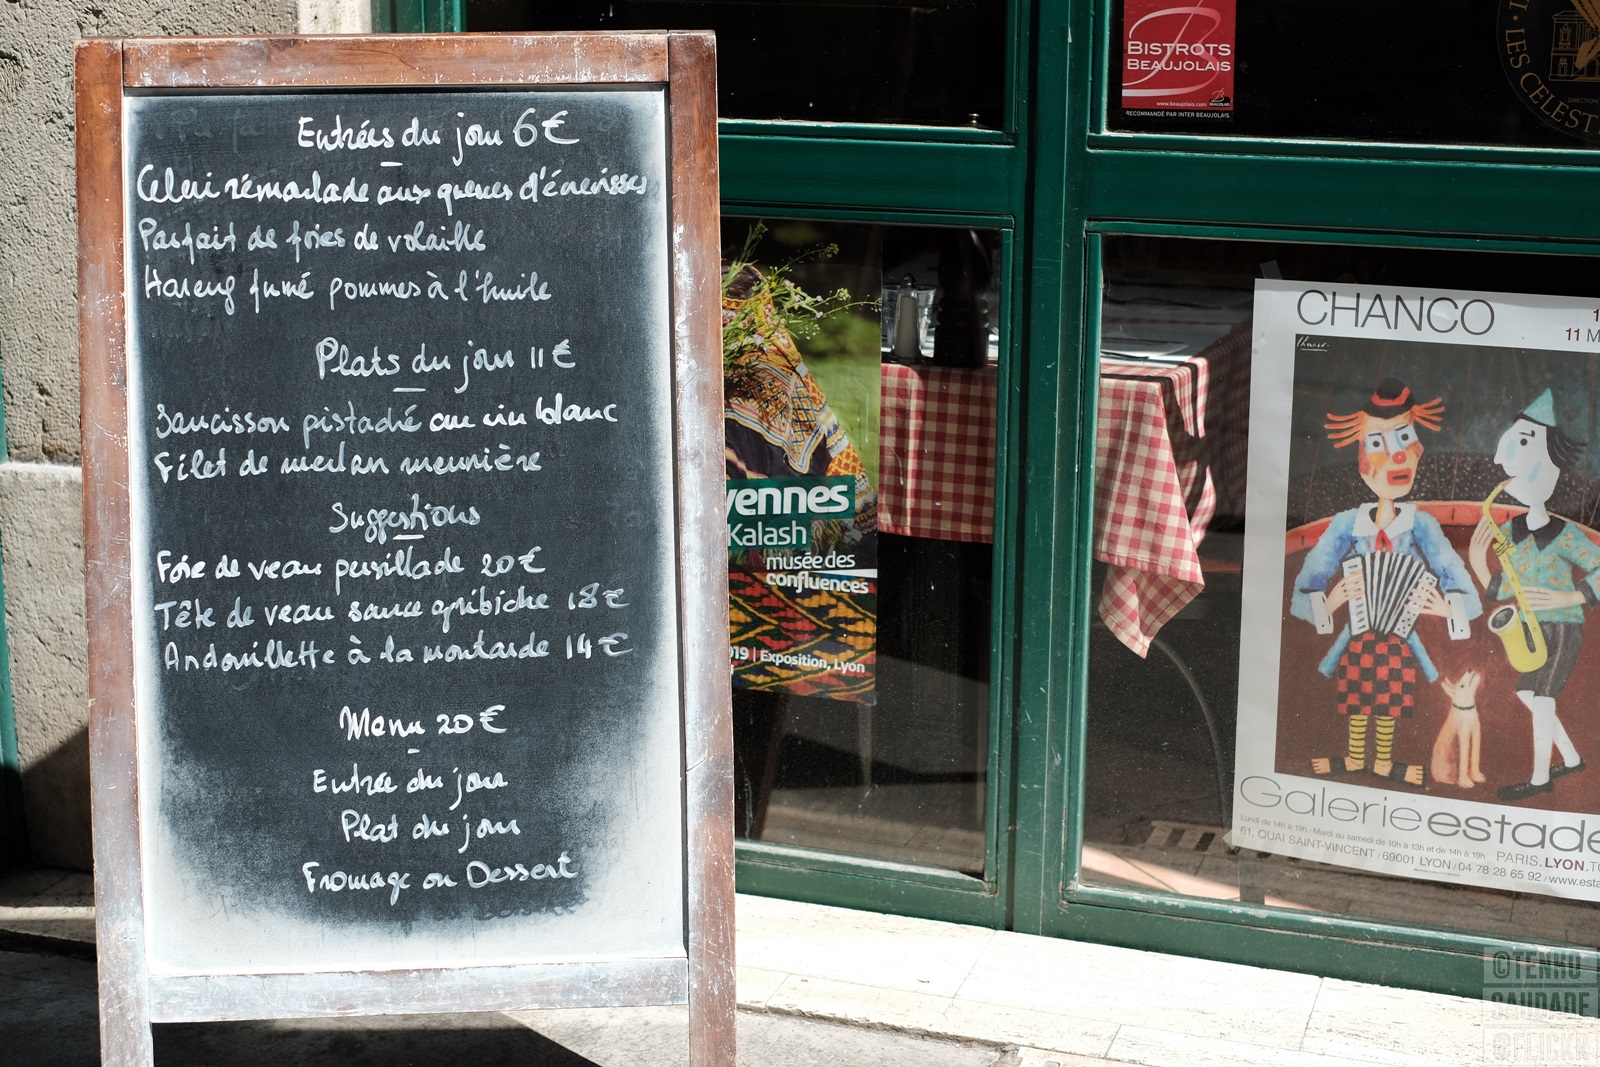 Entrées du jour 6€
Céleri rémoulade aux queues d'écrevisses
Parfait de foies de volaille
Hareng fumé pommes à l'huile
Plats du jour 11€
Saucisson pistaché au vin blanc
Filet de merlan meunière
Suggestions
Foie de veau persillade 20€
Tête de veau sauce gribiche 18€
Andouillette à la moutarde 14€
Menu 20€
Entrée du jour
Plat du jour
Fromage ou Dessert
yennes
Kalash
musée des
confluences
019 | Exposition, Lyon
BISTROTS
BEAUJOLAIS
www.beaujolais.com
BEAUJOLAIS
RECOMMANDÉ PAR INTER BEAUJOLAIS
LES CELEST
DIRECTION
CHANCO
11 M
Galerie estade
Lundi de 14h à 19h / Mardi au samedi de 10h à 13h et de 14h à 19h
61, QUAI SAINT-VINCENT / 69001 LYON / 04 78 28 65 92 / www.esta
PARIS.LYON.TO
©TENHO
SAUDADE
@FLICKR